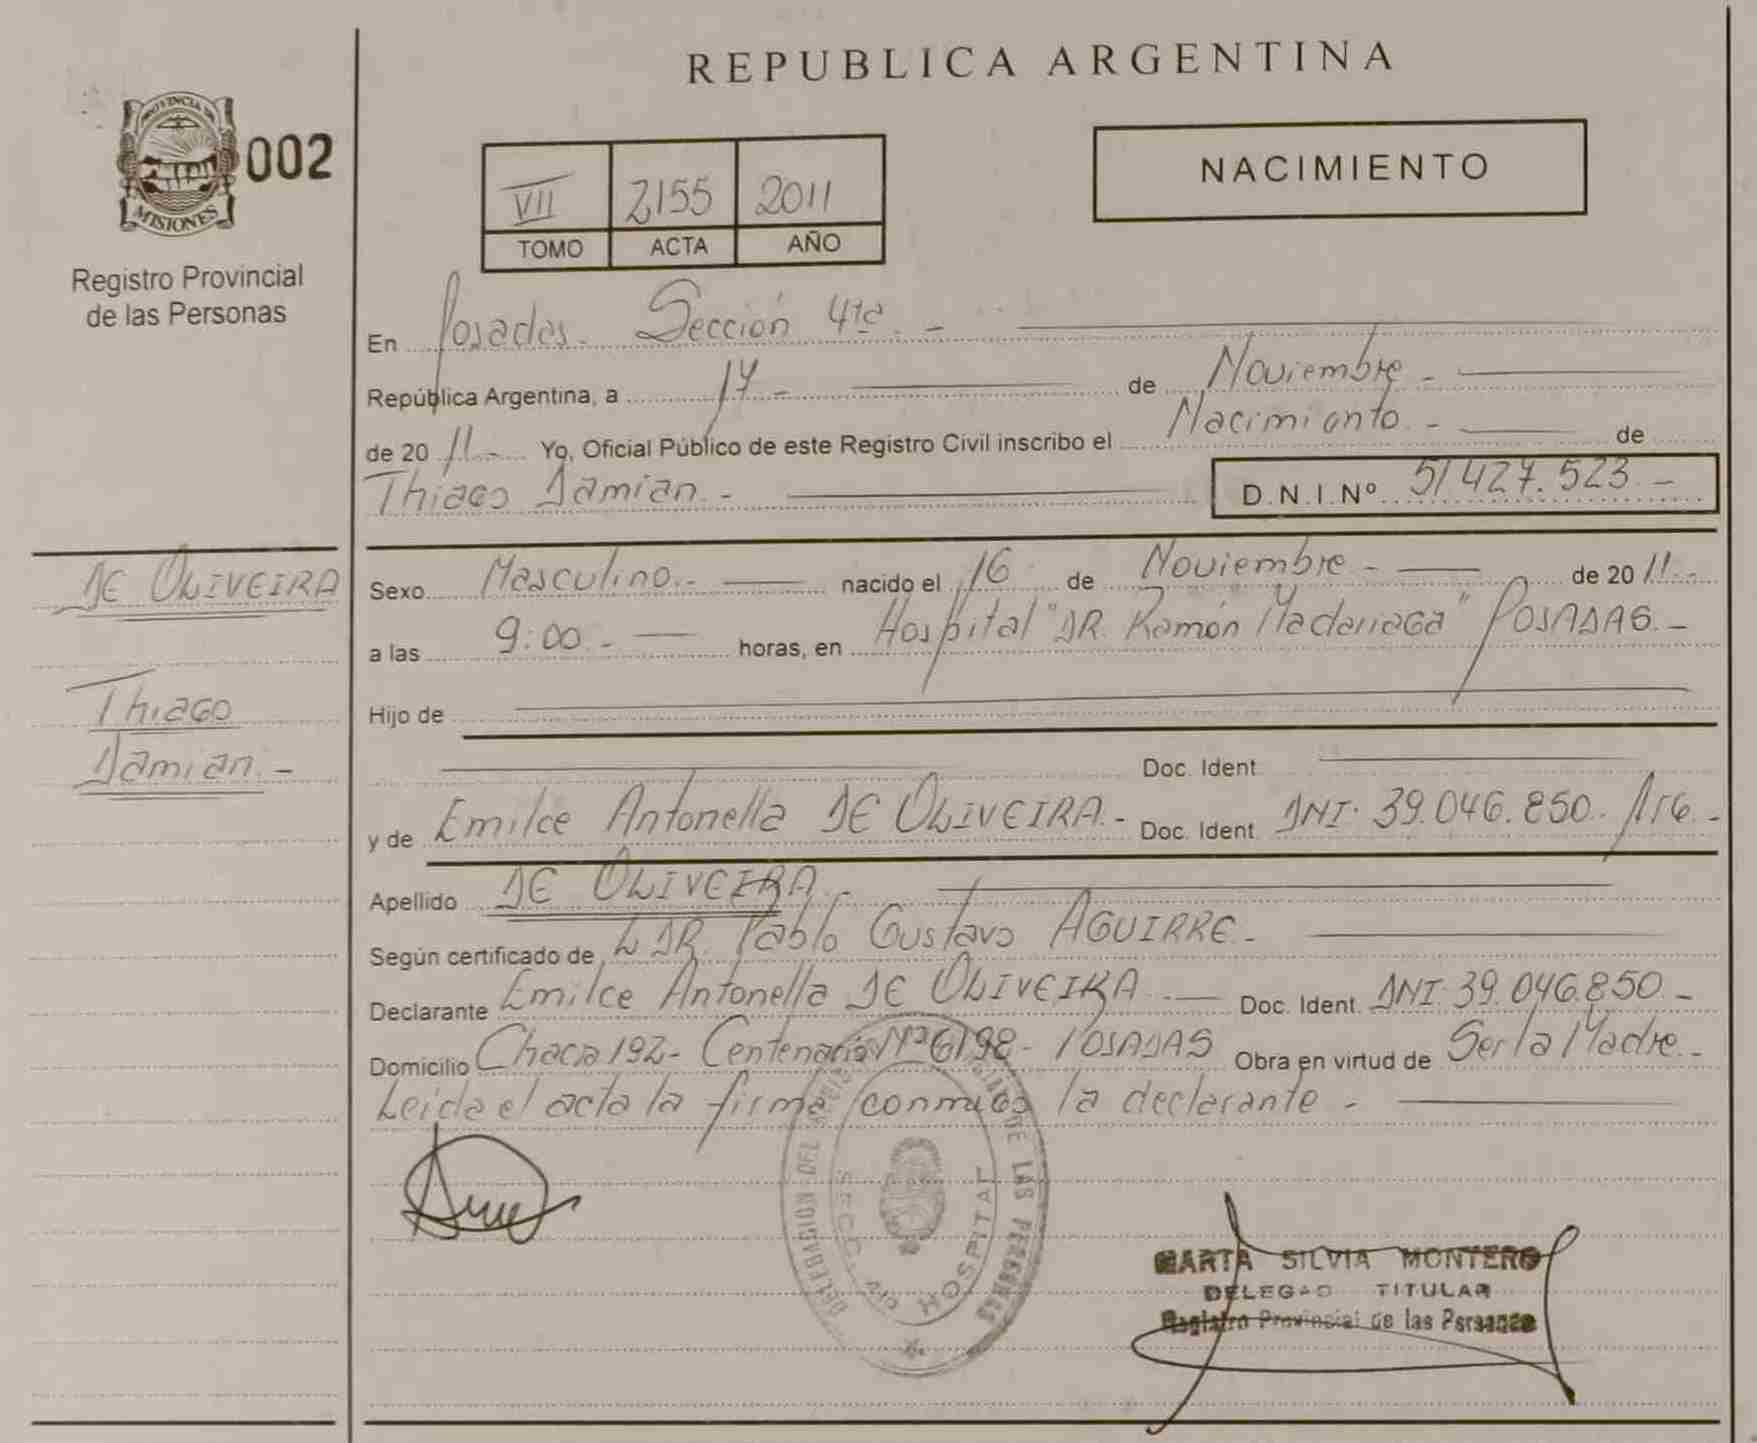 REPUBLICA ARGENTINA
PROVINCIA DE
MISIONES
002
Registro Provincial
de las Personas
VII 2155 2011
TOMO ACTA AÑO
NACIMIENTO
En Posadas. Sección 4ta. -
República Argentina, a 17 - de Noviembre -
de 20 11 - Yo, Oficial Público de este Registro Civil inscribo el Nacimiento - de
Thiago Damian - D.N.I.Nº 51427.523.-
DE OLIVEIRA
Thiago
Damian.-
Sexo Masculino.- nacido el 16 de Noviembre - de 20 11.-
a las 9:00.- horas, en Hospital "DR. Ramón Madariaga" POSADAS.-
Hijo de
Doc. Ident.
y de Emilce Antonella DE OLIVEIRA.- Doc. Ident. DNI. 39.046.850. Arg.-
Apellido DE OLIVEIRA.-
Según certificado de DR. Pablo Gustavo AGUIRRE.-
Declarante Emilce Antonella DE OLIVEIRA.- Doc. Ident. DNI. 39.046.850.-
Domicilio Chacra 192- Centenario Nº 6198- POSADAS Obra en virtud de Ser la Madre.-
Leida el acta la firma conmigo la declarante -
DELEGACION DEL DE LAS PERSONAS
SECC. 4ta HOSPITAL
MARTA SILVIA MONTERO
DELEGAD TITULAR
Registro Provincial de las Personas